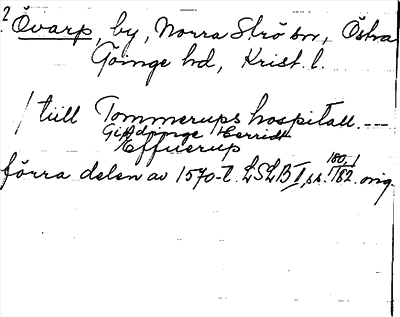 2 Övarp, by, Norra Strö sn, Östra
Göinge hd, Krist. l.
/ till Tommerups hospitall. ---
Giödinge Herridt
Effuerup
förra delen av 1570-t. LSLB II, s. 180, 1
182. orig.